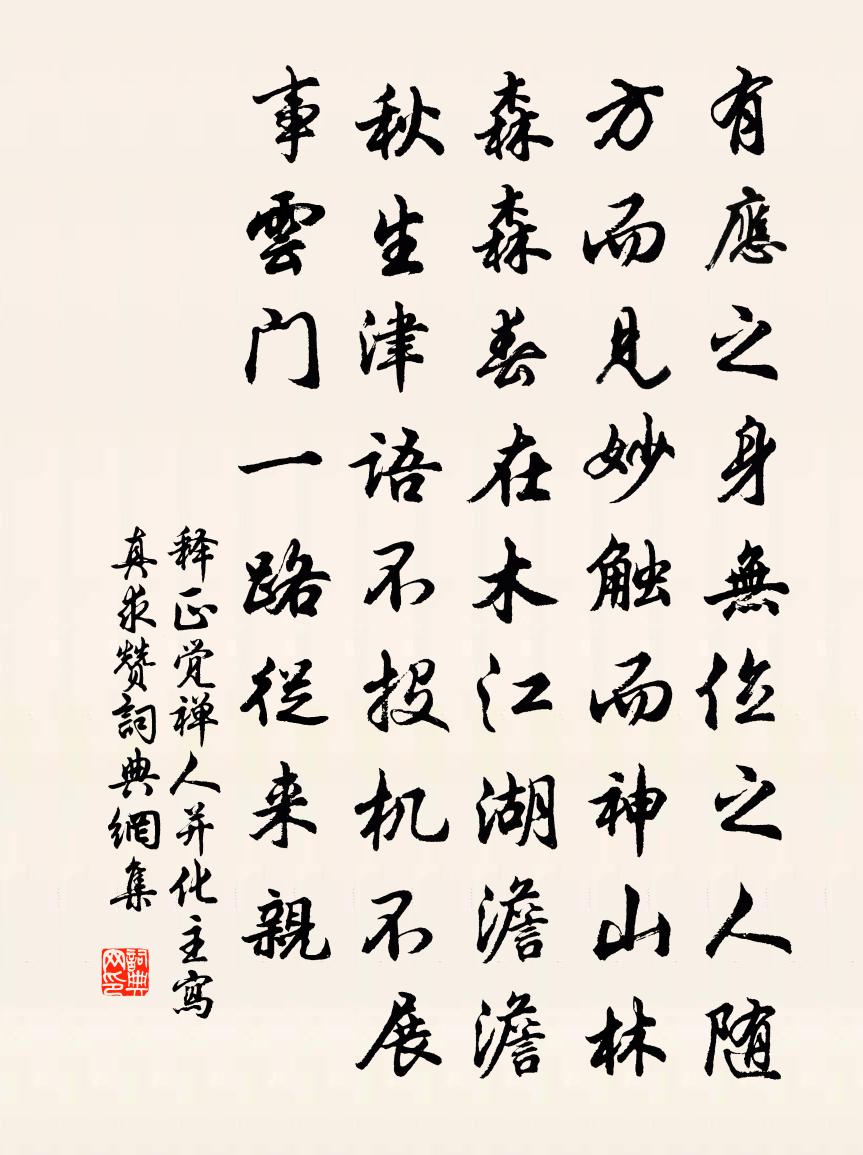 有應之身無位之人随
方而見妙触而神山林
森森春在木江湖澹澹
秋生津語不投机不展
事雲门一路從来親
释正覚禅人并化主寫
真求赞詞典網集
詞典网印